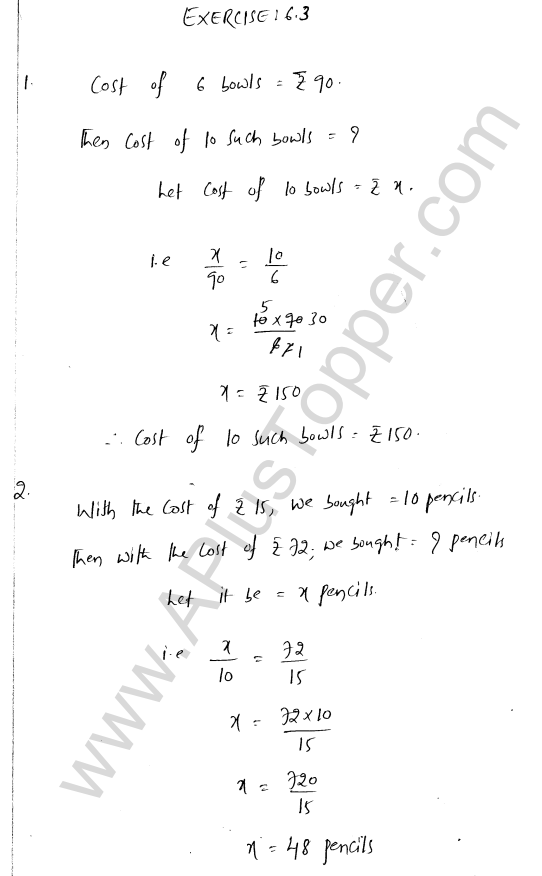 EXERCISE: 6.3
1. Cost of 6 bowls = ₹ 90.
Then Cost of 10 such bowls = ?
Let Cost of 10 bowls = ₹ x.
i.e x/90 = 10/6
x = 10 5 × 90 30 / 6 2 1
x = ₹ 150
∴ Cost of 10 such bowls = ₹ 150.
2. With the Cost of ₹ 15, we bought = 10 pencils.
Then with the Cost of ₹ 72, we bought = ? pencils
Let it be = x pencils.
i.e x/10 = 72/15
x = 72 × 10 / 15
x = 720/15
x = 48 pencils
www.APlusTopper.com